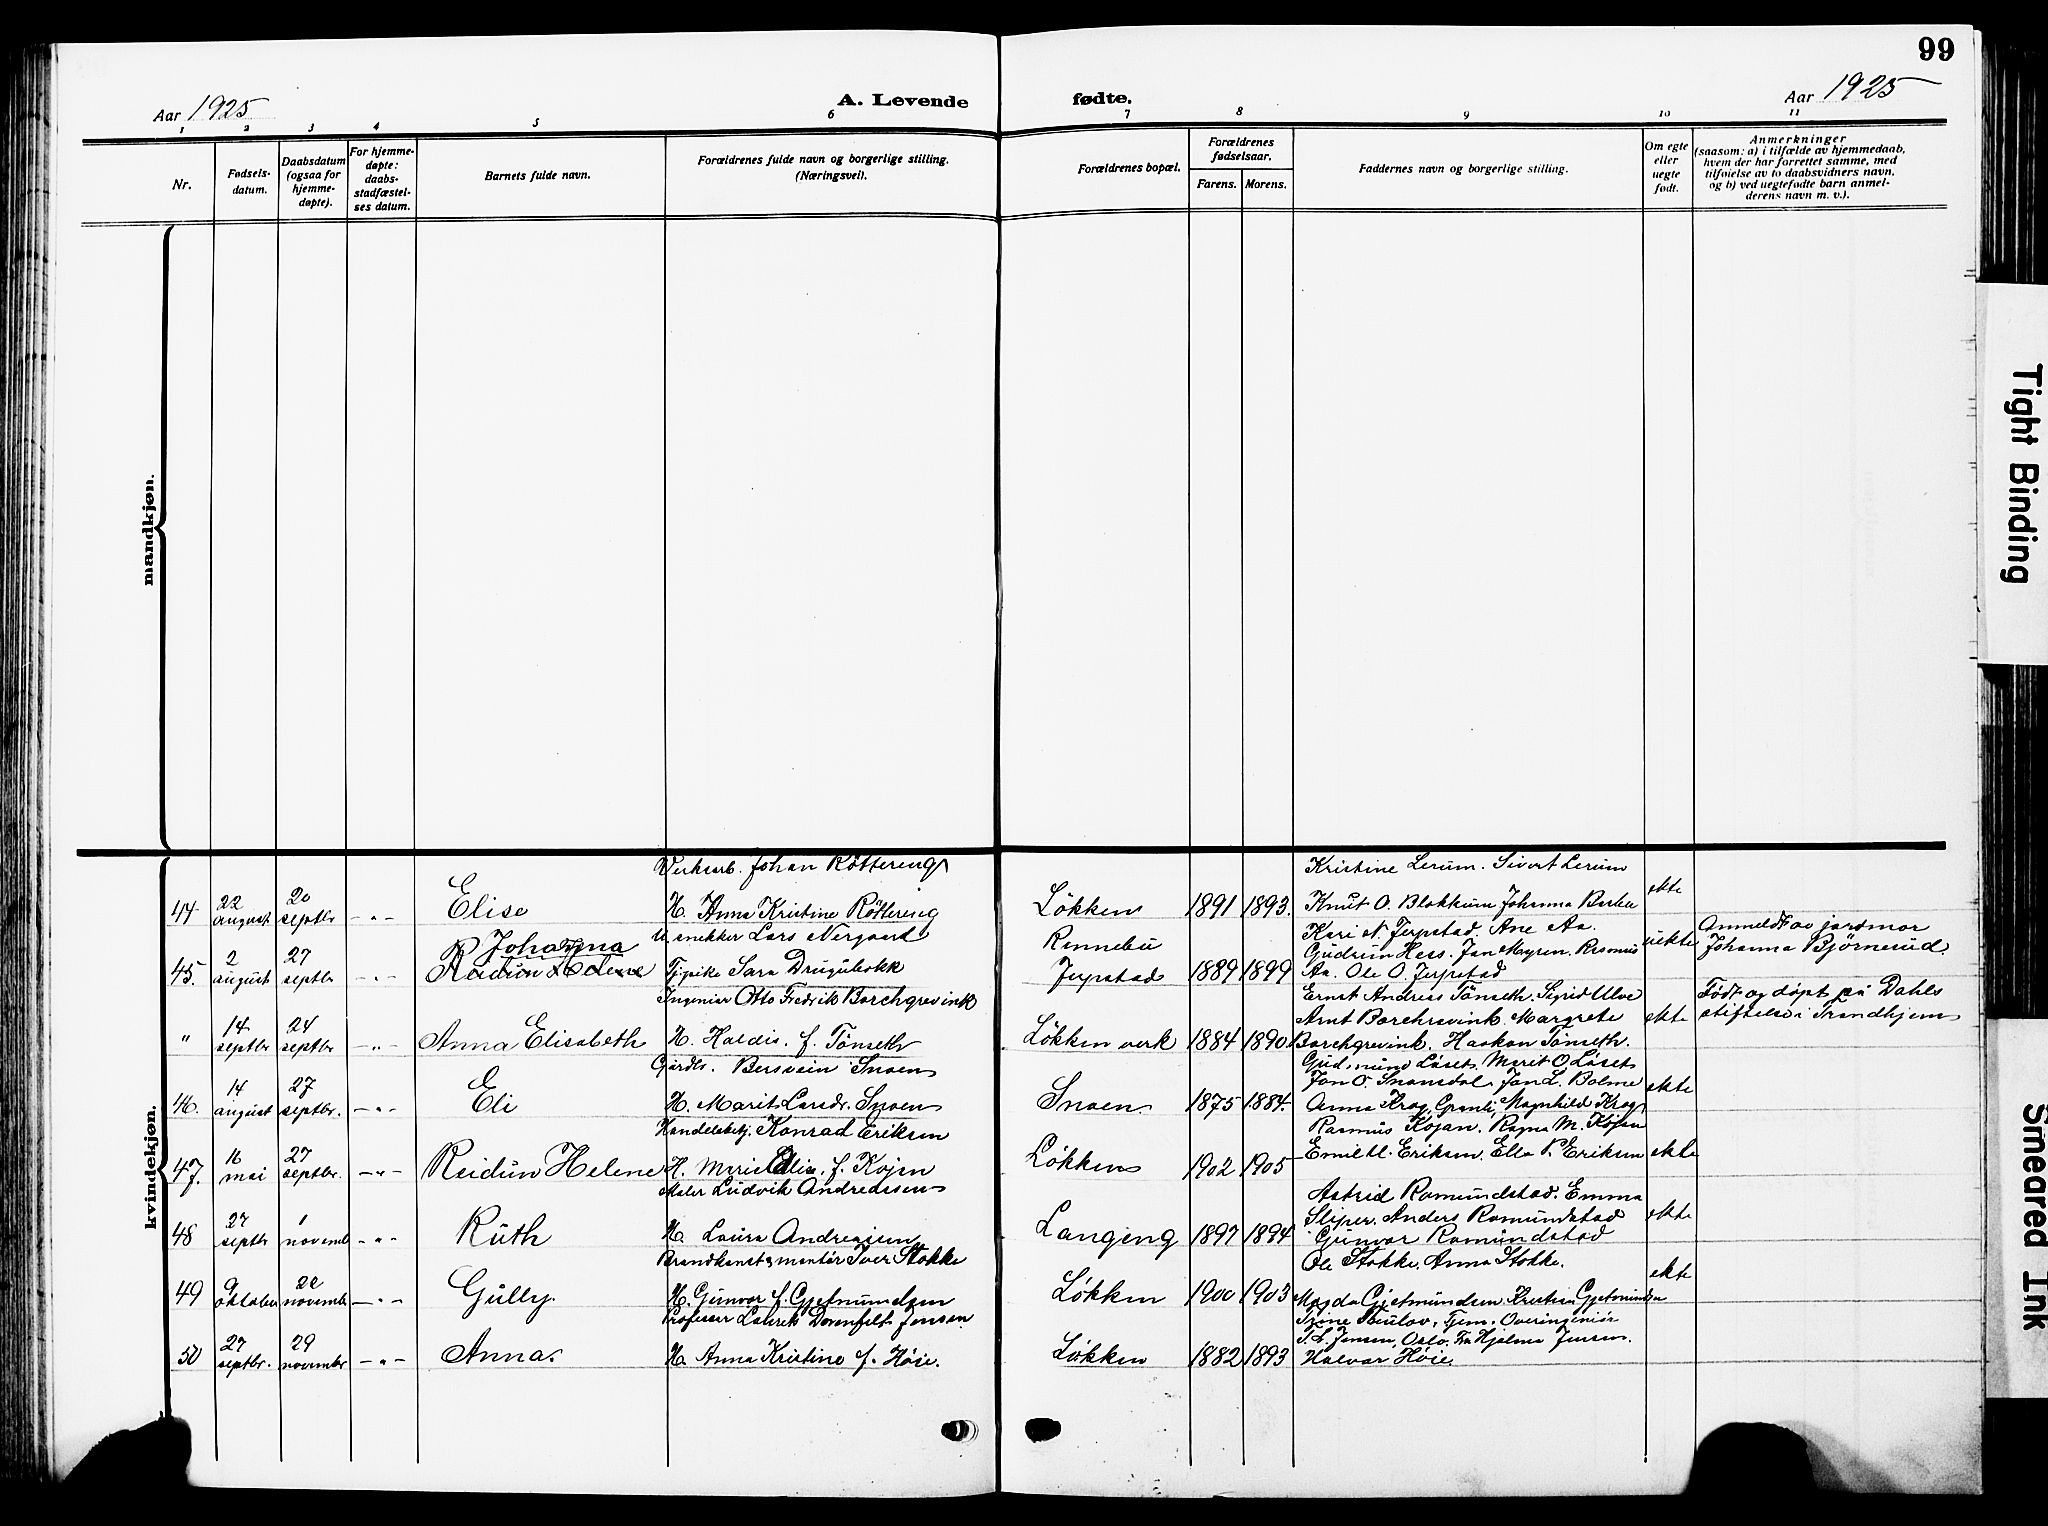 99
Aar 1925
A. Levende
fødte.
Aar 1925
1 2 3 4 5 6 7 8 9 10 11
Nr.
Fødsels-
datum.
Daabsdatum
(ogsaa for
hjemme-
døpte).
For hjemme-
døpte:
daabs-
stadfæstel-
ses datum.
Barnets fulde navn.
Forældrenes fulde navn og borgerlige stilling.
(Næringsvei).
Forældrenes bopæl.
Forældrenes
fødselsaar.
Farens. Morens.
Faddernes navn og borgerlige stilling.
Om egte
eller
uegte
født.
Anmerkninger
(saasom: a) i tilfælde av hjemmedaab,
hvem der har forrettet samme, med
tilføielse av to daabsvidners navn,
og b) ved uegtefødte barn anmel-
derens navn m. v.).
mandkjøn.
kvindekjøn.
Verksarb. Johan Røttereng
Kristine Lerum. Sivert Lerum
44 22 august 20 septbr -"- Elise H. Anna Kristine Røttereng Løkken 1891 1893. Knut O. Blokkum Johanna ekte
U. snekker Lars Nergaard
Rennebu
Kari N. Jerpstad. Ane Aa.
Anmeldt av jordmor
Johanna
Gudrun Hess. Jan Rasmus
uekte
Johanna Bjørnerud.
45. 2 august 27 septbr -"- Reidun Helene Tjpike Sara Drugubokk Jerpstad 1889 1899 Aa. Ole O. Jerpstad
Ingeniør Otto Fredrik Borchgrevink
Ernst Andreas Tönseth. Sigrid Ulve
Født og døpt på Dahls
Arnt Borchgrevink. Margrete
stiftelse i Trondhjem
" 14 septbr 24 septbr -"- Anna Elisabeth H. Haldis. f. Tönseth Løkken verk 1884 1890. Borchgrevink. Haakon Tönseth. ekte
Gårdbr. Bersvein Snoen
Gudmund Løset. Marit O. Løset
Jon O. Jon L. Bolme
46. 14 august 27 septbr. -"- Eli H. Marit Larsdr. Snoen Snoen 1875 1884. Anna Krog, Granli, Magnhild Krog ekte
Handelsbetj. Konrad Eriksen
Rasmus Kojan. Ragna M. Kojan
47. 16 mai 27 septbr. -"- Reidun Helene H. Marie f. Kojan Løkken 1902 1905 Emil Eriksen. Ella P. Eriksen ekte
Maler Ludvik Andreassen
Astrid Romundstad. Emma
Sliper. Anders Romundstad
48 27 septbr 1 novemb -"- Ruth H. Laura Andreassen Langeng 1897 1894 Gunvor Romundstad ekte
Iver Stokke
Ole Stokke. Anna Stokke.
49 9 oktober 22 novembr -"- Gully. H. Gunvor f. Gjetmundsen Løkken 1900 1903 Magda Gjetmundsen. Kristian Gjetmundsen ekte
Professer Dornfelt Jensen.
Overingeniør
T. L. Jensen, Oslo. Fru Hjalma Jensen.
50 27 septbr. 29 novembr -"- Anna. H. Anna Kristine f. Høie. Løkken 1882 1893 Halvar Høie.
Tight Binding
Smeared Ink